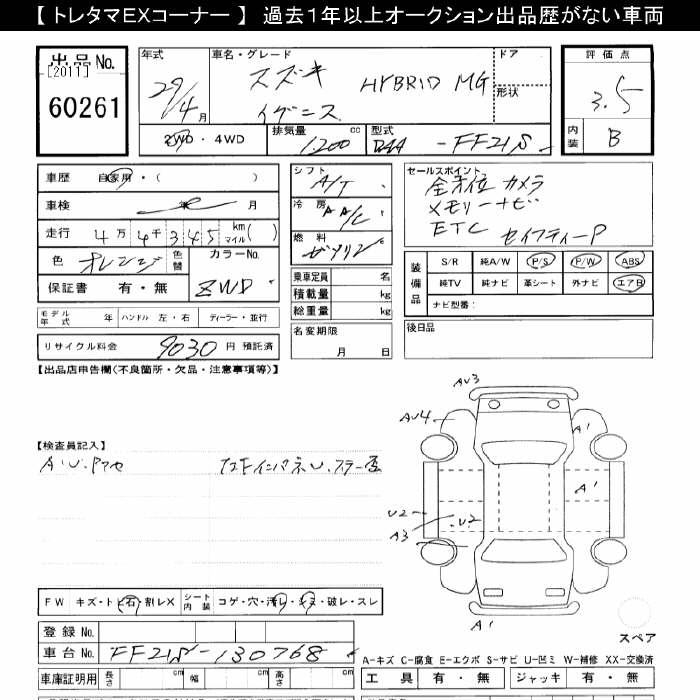 【 トレタマEXコーナー 】 過去１年以上オークション出品歴がない車両
出品No.
[2011]
60261
年式
29/4月
車名・グレード
スズキ
イグニス
HYBRID MG
ドア
形状
評価点
3.5
内装 B
2WD・4WD
排気量 1200 cc
型式 DAA-FF21S
車歴 自家用・( )
車検 年 月
走行 4万4千345 km マイル( )
色 オレンジ 色替
カラーNo. ZWD
保証書 有・無
モデル年式 年 ハンドル 左・右 ディーラー・並行
リサイクル料金 9030 円 預託済
シフト A/T
冷房 AA/C
燃料 ガソリン
乗車定員 名
積載量 kg
総重量 kg
名変期限
月 日
セールスポイント
全方位 カメラ
メモリーナビ
ETC セイフティーP
装備品
S/R 純A/W P/S P/W ABS
純TV 純ナビ 革シート 外ナビ エアB
ナビ型番：
後日品
【出品店申告欄(不良箇所・欠品・注意事項等)】
【検査員記入】
AV3
AV4
A'
A'
U2
U2
A3
A'
FW キズ・トビ石・割レX
シート内装 コゲ・穴・汚レ・キズ・破レ・スレ
登録No.
車台No. FF21S-130768
スペア
A-キズ C-腐食 E-エクボ S-サビ U-凹ミ W-補修 XX-交換済
車庫証明用 長さ cm 幅 cm 高さ cm
工具 有・無 ジャッキ 有・無